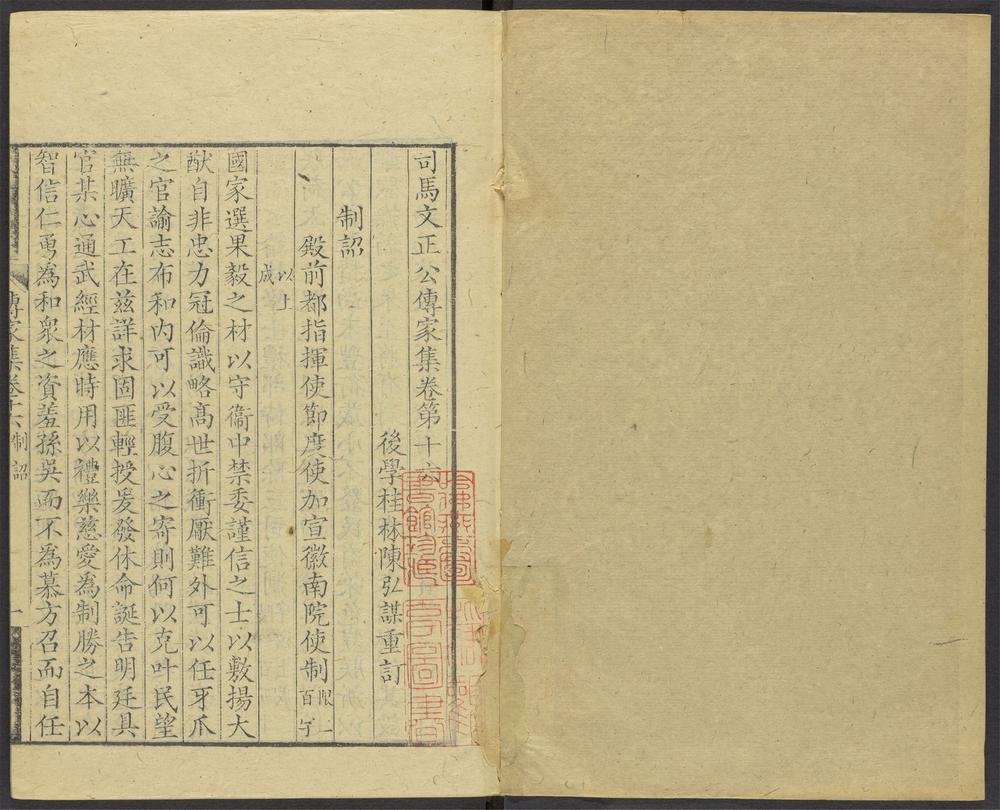 司馬文正公傳家集卷第十六
後學桂林陳弘謀重訂
制詔
殿前都指揮使節度使加宣徽南院使制限二百字
以上成
國家選果毅之材以守衞中禁委謹信之士以敷揚大
猷自非忠力冠倫識略高世折衝厭難外可以任牙爪
之官諭志布和内可以受腹心之寄則何以克叶民望
無曠天工在兹詳求固匪輕授爰發休命誕告明廷具
官某心通武經材應時用以禮樂慈愛為制勝之本以
智信仁勇為和衆之資羞孫吳而不為慕方召而自任
傳家集卷十六 制詔 一